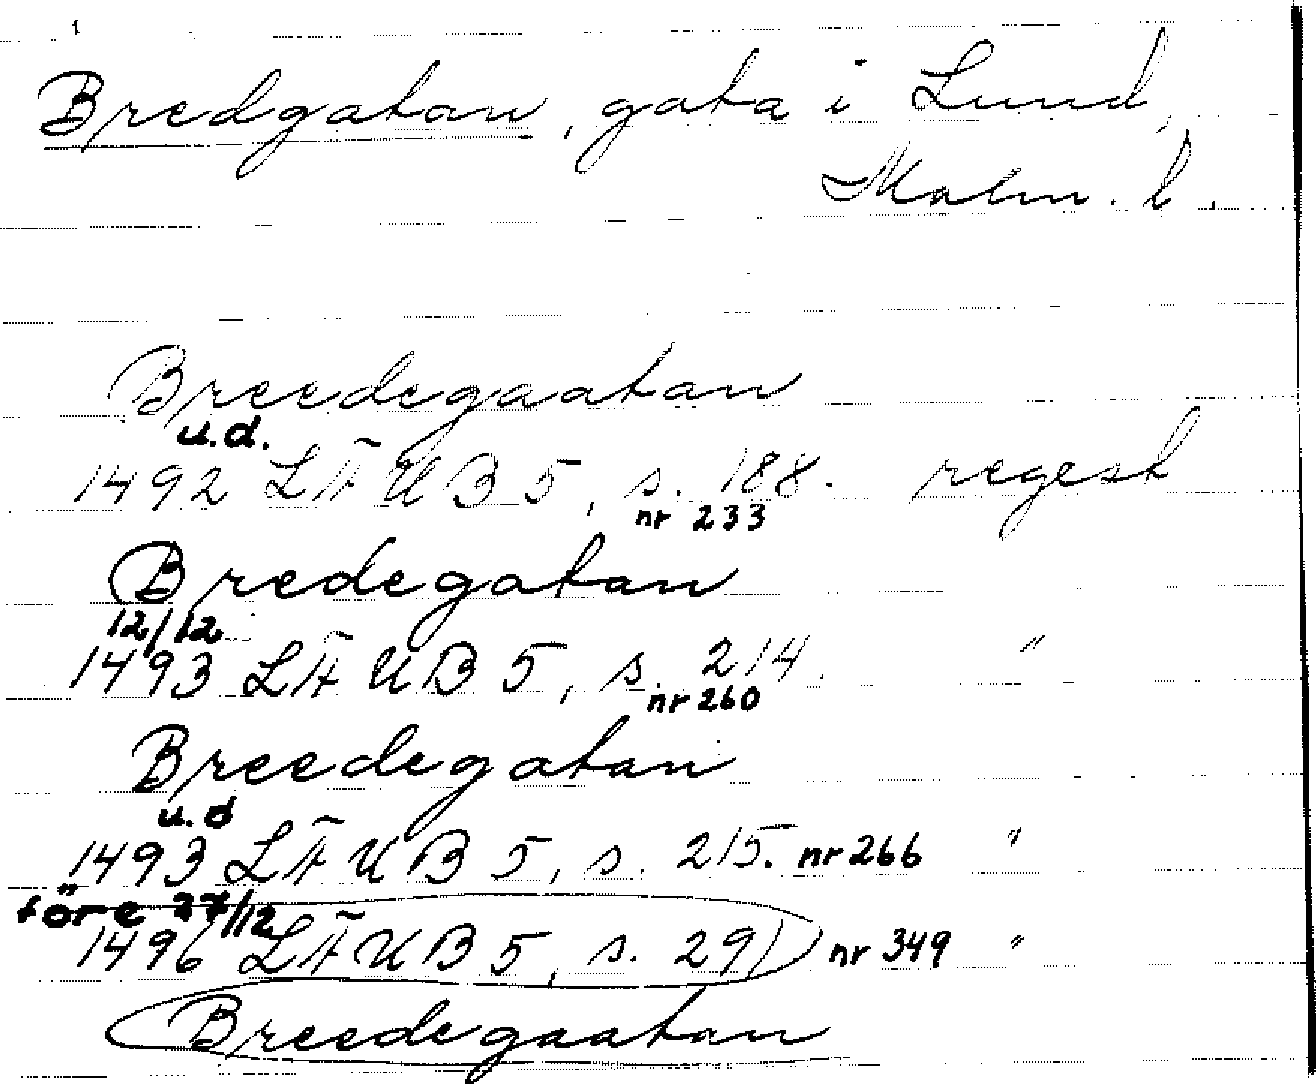 1
Bredgatan, gata i Lund,
Malm. l.
Breedegaatan
u.d.
1492 LÄUB 5, s. 188. regest
nr 233
Bredegatan
12/12
1493 LÄUB 5, s. 214. "
nr 260
Breedegatan
u.d
1493 LÄUB 5, s. 215. nr 266 "
före 27/12
1496 LÄUB 5, s. 291 nr 349 "
Breedegaatan